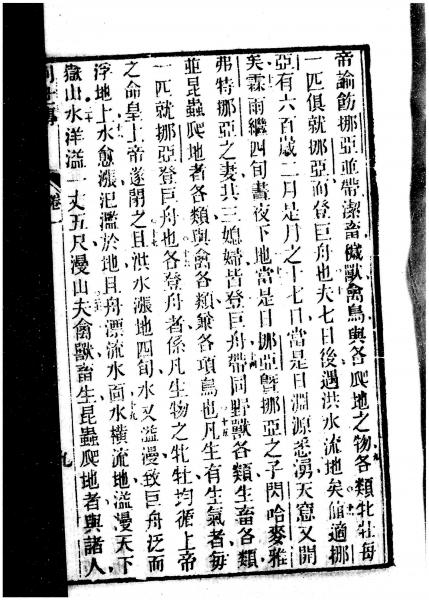 帝諭飭挪亞並帶潔畜穢獸禽鳥與各爬地之物各類牝牡每
一匹俱就挪亞而登巨舟也夫七日後遇洪水流地矣維適挪
亞有六百歲二月是月之十七日當是日淵源悉湧天窓又開
矣霖雨繼四旬晝夜下地當是日挪亞曁挪亞之子閃哈麥雅
弗特挪亞之妻共三媳婦皆登巨舟帶同野獸各類生畜各類
並昆蟲爬地者各類與禽各類兼各項鳥也凡生有生氣者每
一匹就挪亞登巨舟也各登舟者係凡生物之牝牡均循上帝
之命皇上帝遂閉之且洪水漲地四旬水又溢漫致巨舟泛而
浮地上水愈漲氾濫於地且舟漂流水面水橫流地溢漫天下
嶽山水洋溢一丈五尺漫山夫禽獸畜生昆蟲爬地者與諸人
卷一
九